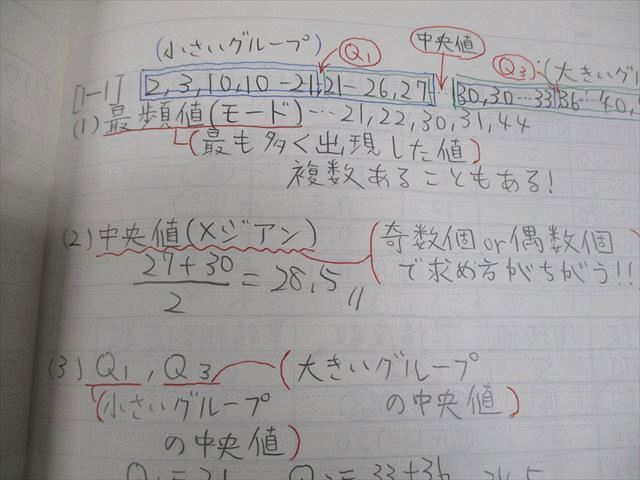 (小さいグループ) Q₁ 中央値 Q₃ (大きいグル
[1-1] 2, 3, 10, 10 - 21, 21 - 26, 27 … 30, 30 … 33, 36 … 40,
(1) 最頻値(モード) … 21, 22, 30, 31, 44
(最も多く出現した値)
複数あることもある!
(2) 中央値(メジアン) (奇数個or偶数個
27+30/2 = 28.5 で求め方がちがう!!)
(3) Q₁, Q₃ (大きいグループ
(小さいグループ の中央値)
の中央値)